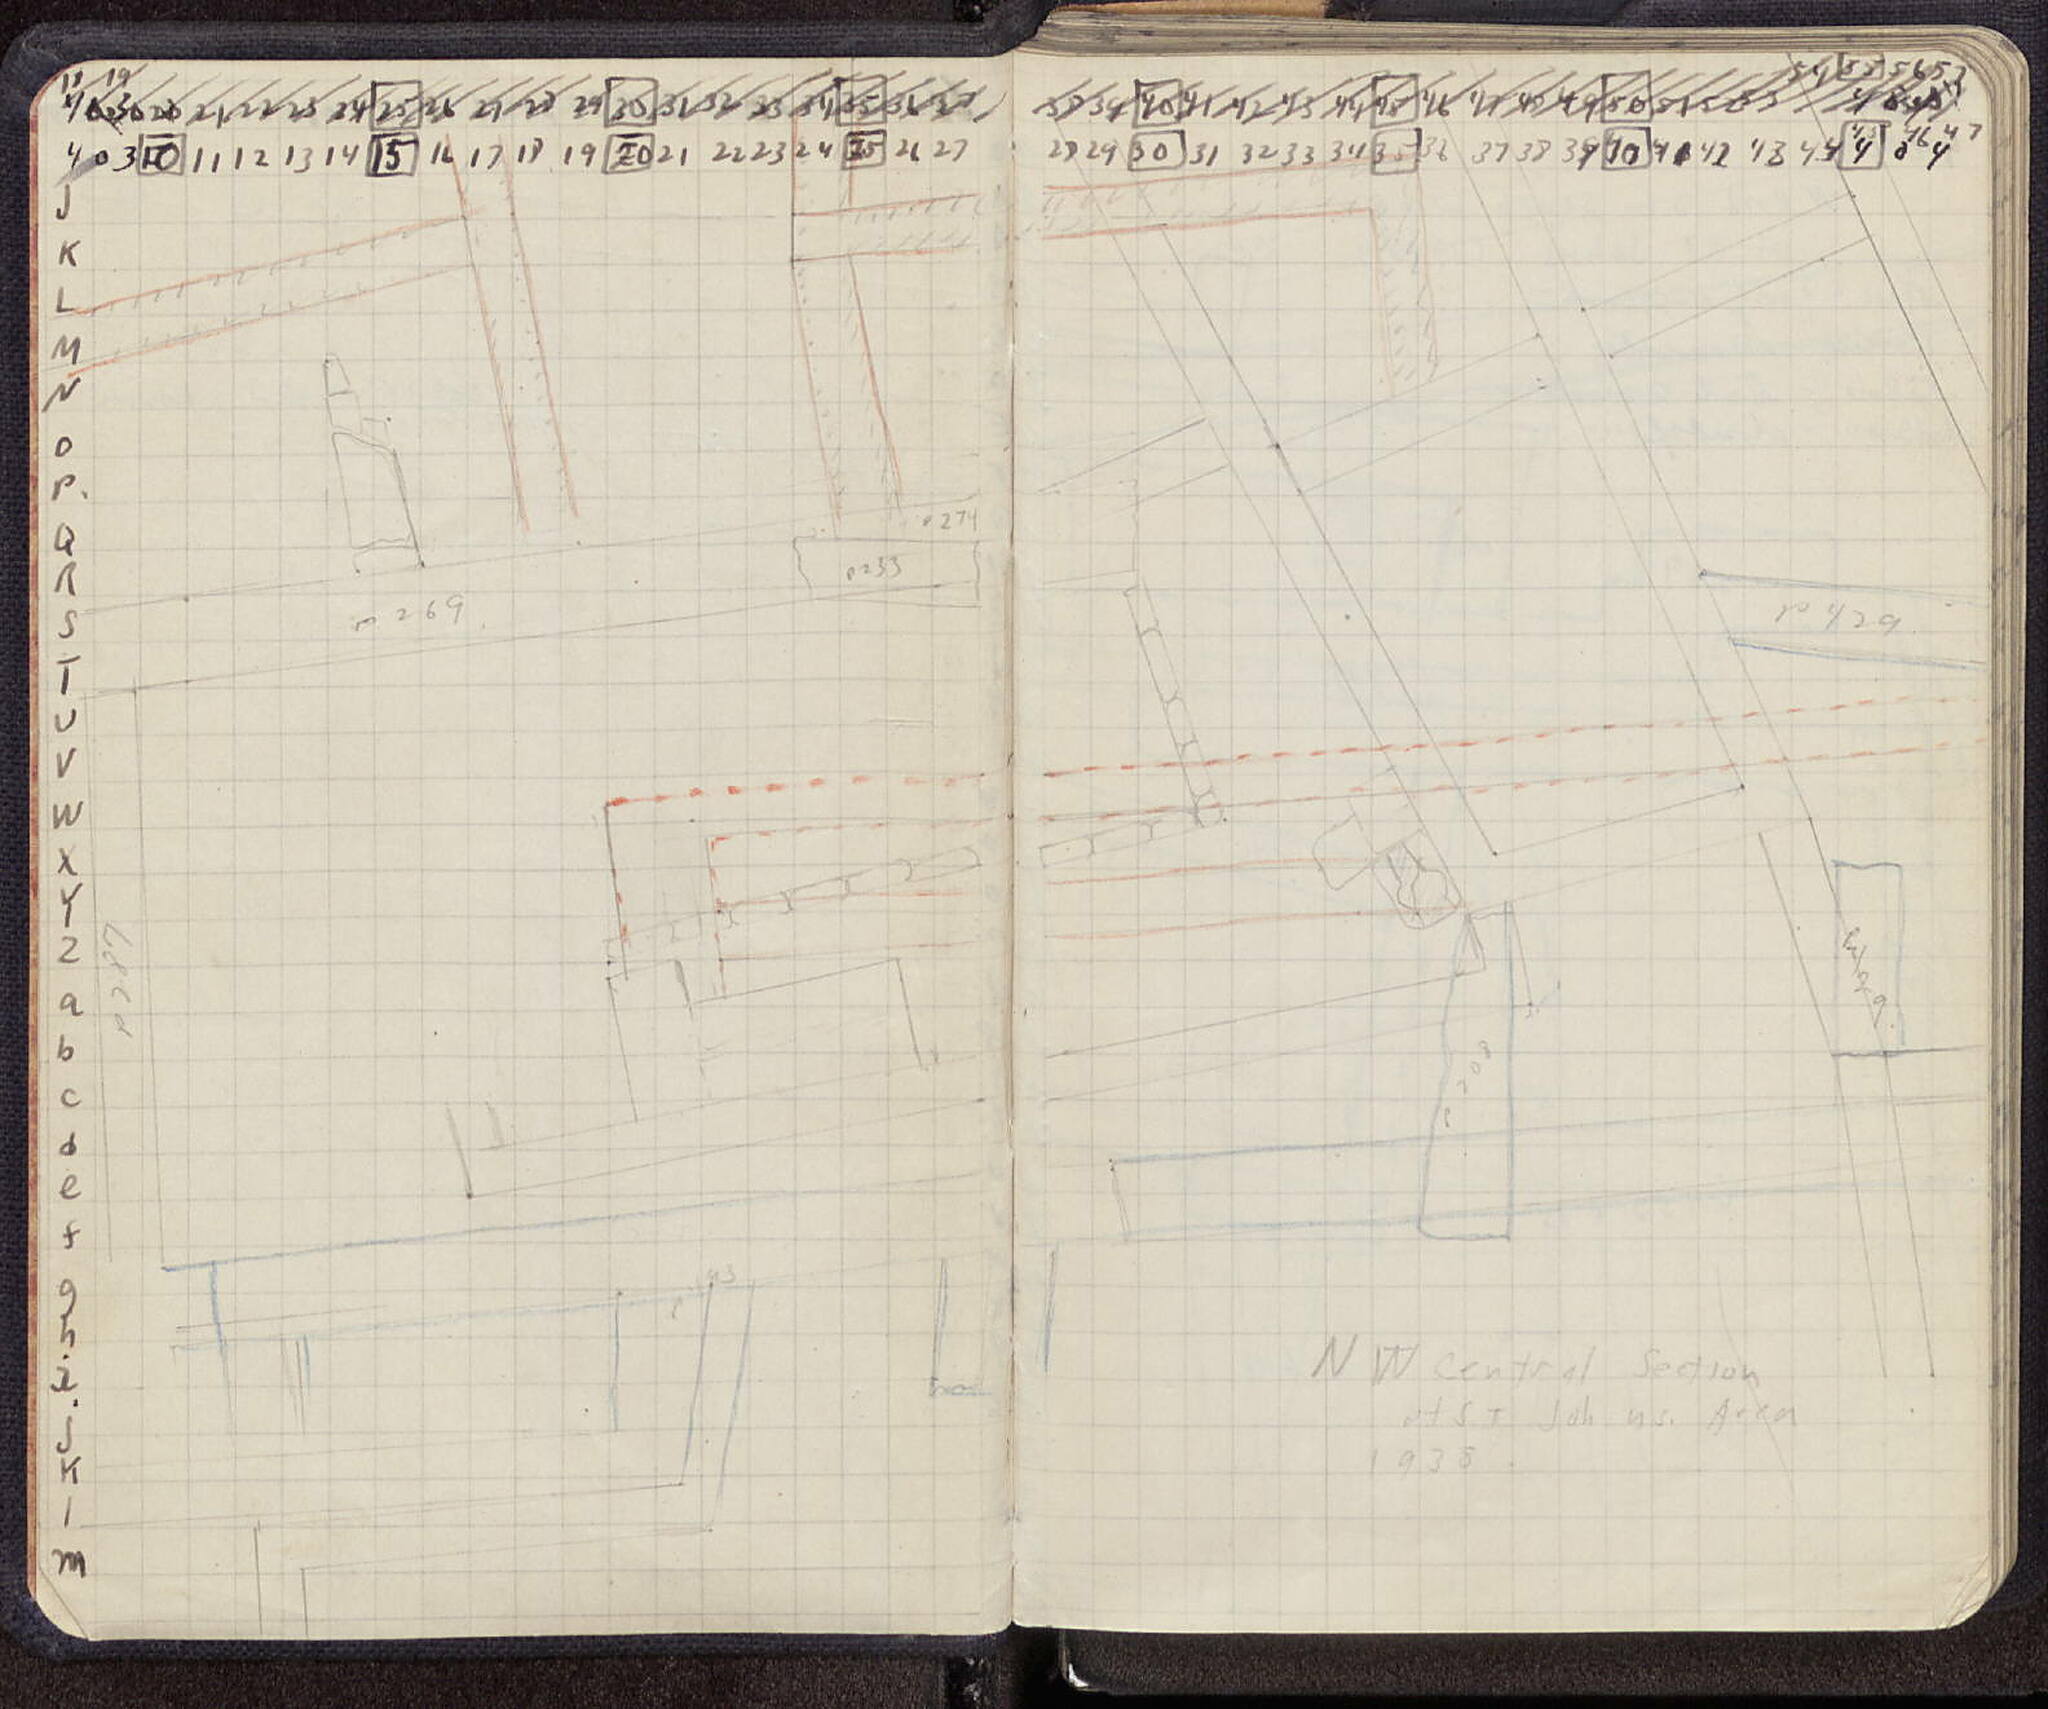 18 19
20 21 22 23 24 25 26 27 28 29 30 31 32 33 34 35 36 37
38 39 40 41 42 43 44 45 46 47 48 49 50 51 52 53
54 55 56 57
10 11 12 13 14 15 16 17 18 19 20 21 22 23 24 25 26 27
28 29 30 31 32 33 34 35 36 37 38 39 40 41 42 43 44 45 46 47
J
K
L
M
N
O
P.
Q
R
S
T
U
V
W
X
Y
Z
a
b
c
d
e
f
g
h
i
j
K
l
m
p 274
p 233
p 269
p 429
p 287
p 209
NW Central Section
of St Johns. Area
1938